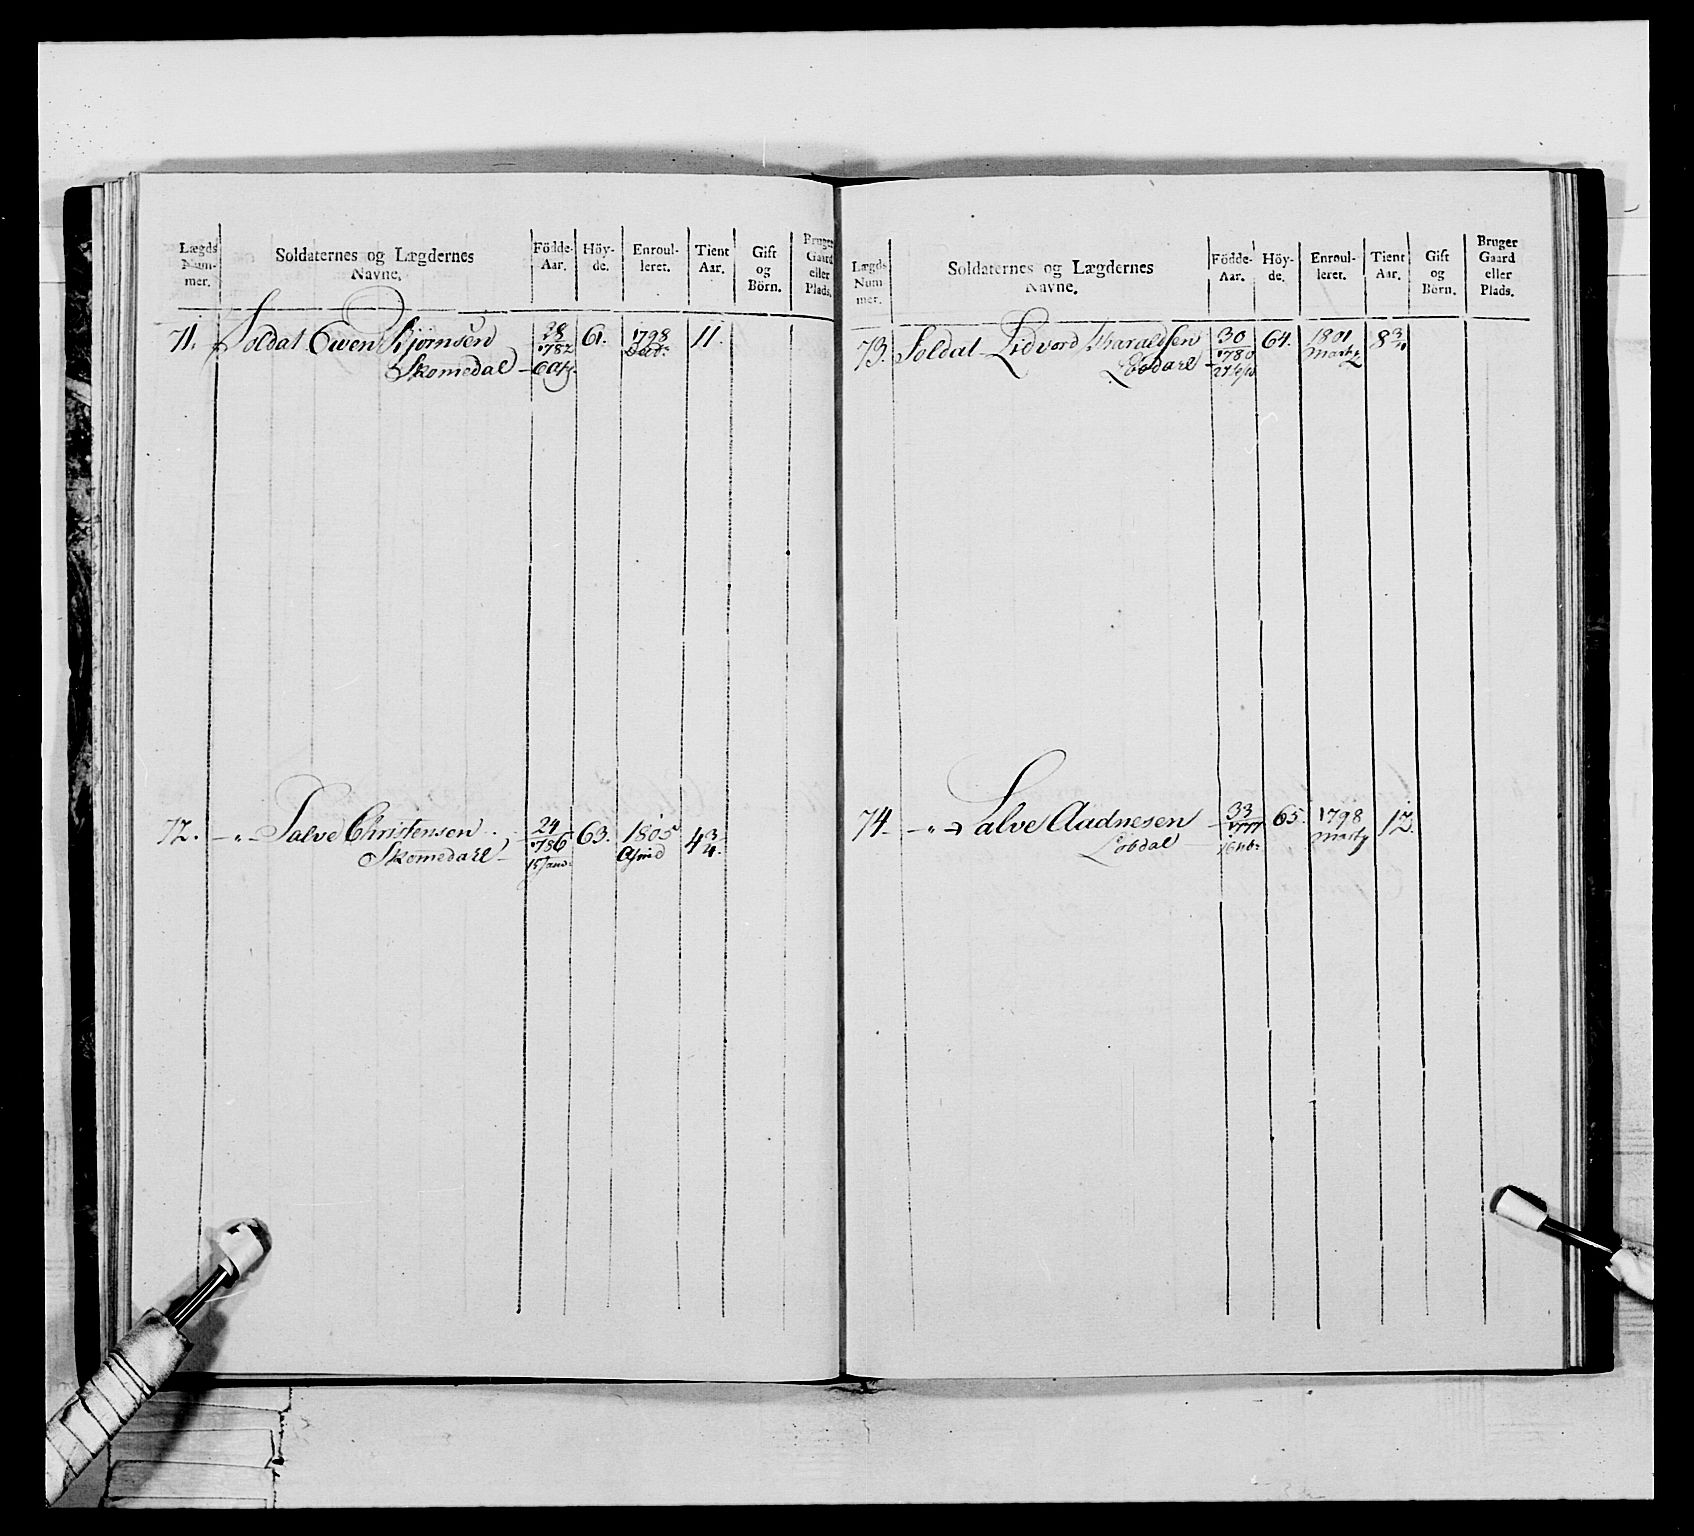 Lægds Num- mer.
Soldaternes og Lægdernes Navne.
Födde- Aar.
Höy- de.
Enroul- leret.
Tient Aar.
Gift og Börn.
Bruger Gaard eller Plads.
71. Soldat Ewen Bjørnsen 28 61. 1798 11.
Skomedal 1782
72. -"- Salve Christensen 24 63. 1805 4 3/4.
Skomedahl 1786
15 Janu:
Lægds Num mer.
Soldaternes og Lægdernes Navne.
Födde- Aar.
Höy- de.
Enroul- leret.
Tient Aar.
Gift og Börn.
Bruger Gaard eller Plads.
73. Soldat Lidvord Haraldsen 30 64. 1801 8 3/4
1780 Marty
74. -"- Salve Aadnesen 33 65. 1798 12.
Løbdal 1777 Marty